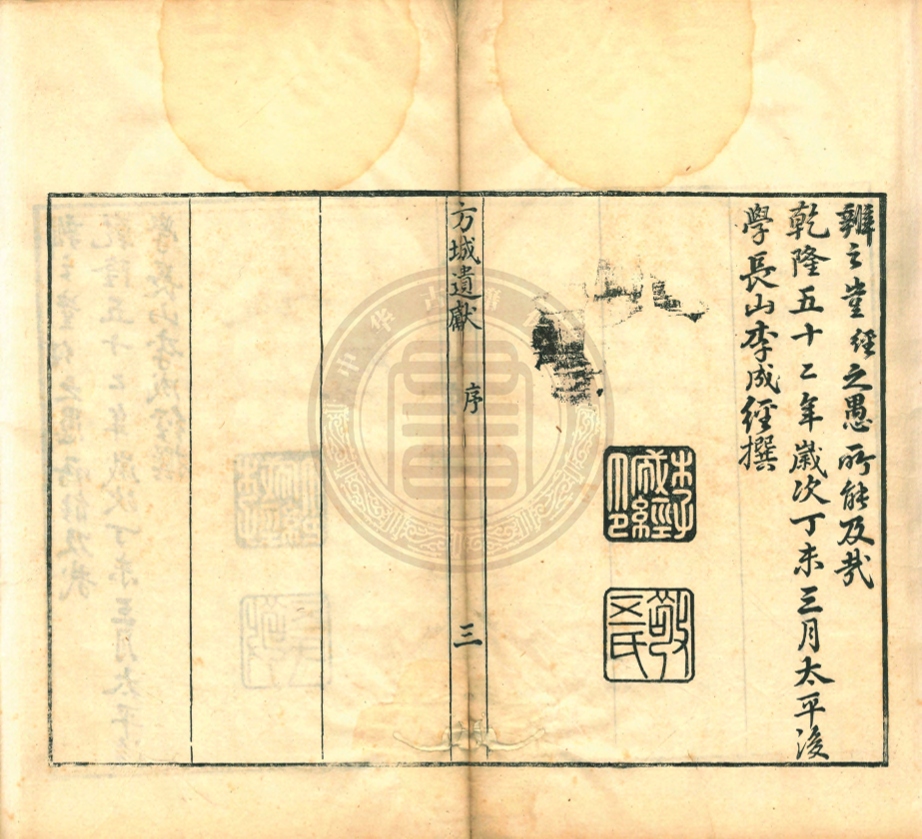 辯云豈經之愚所能及哉
乾隆五十二年歲次丁未三月太平後
學長山李成經撰
李成經印
敬五氏
方城遺獻
序
三